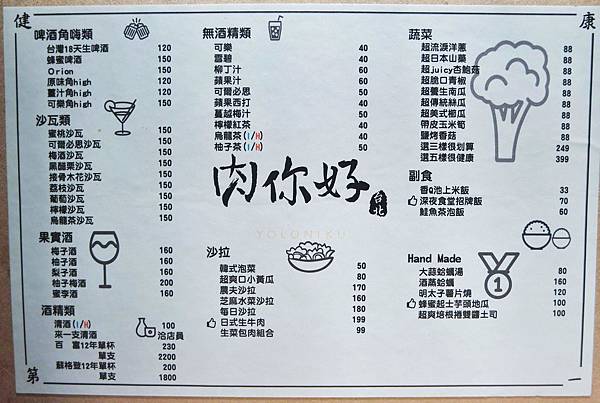 健
康
第
一
啤酒角嗨類
台灣18天生啤酒 120
蜂蜜啤酒 150
Orion 150
原味角high 120
薑汁角high 150
可樂角high 150
沙瓦類
蜜桃沙瓦 150
可爾必思沙瓦 150
梅酒沙瓦 150
黑醋栗沙瓦 150
接骨木花沙瓦 150
荔枝沙瓦 150
葡萄沙瓦 150
檸檬沙瓦 150
烏龍茶沙瓦 150
果實酒
梅子酒 160
柚子酒 160
梨子酒 160
柚子梅酒 200
蜜李酒 160
酒精類
清酒(I/H) 100
來一支清酒 洽店員
百富12年單杯 230
單支 2200
蘇格登12年單杯 200
單支 1800
無酒精類
可樂 40
雪碧 40
柳丁汁 60
蘋果汁 60
可爾必思 60
蘋果西打 40
蔓越梅汁 50
檸檬紅茶 40
烏龍茶(I/H) 40
柚子茶(I/H) 50
肉你好
台北
YOLONIKU
沙拉
韓式泡菜 50
超爽口小黃瓜 80
農夫沙拉 170
芝麻水菜沙拉 160
每日沙拉 180
日式生牛肉 199
生菜包肉組合 99
蔬菜
超流淚洋蔥 88
超日本山藥 88
超juicy杏鮑菇 88
超脆口青椒 88
超養生南瓜 88
超傳統絲瓜 88
超美式櫛瓜 88
帶皮玉米筍 88
鹽烤香菇 88
選三樣很划算 249
選五樣很健康 399
副食
香Q池上米飯 33
深夜食堂招牌飯 70
鮭魚茶泡飯 60
Hand Made
大蒜蛤蠣湯 80
酒蒸蛤蠣 160
明太子薯片燒 120
蜂蜜起士芋頭地瓜 100
超爽培根捲雙醬土司 100
1